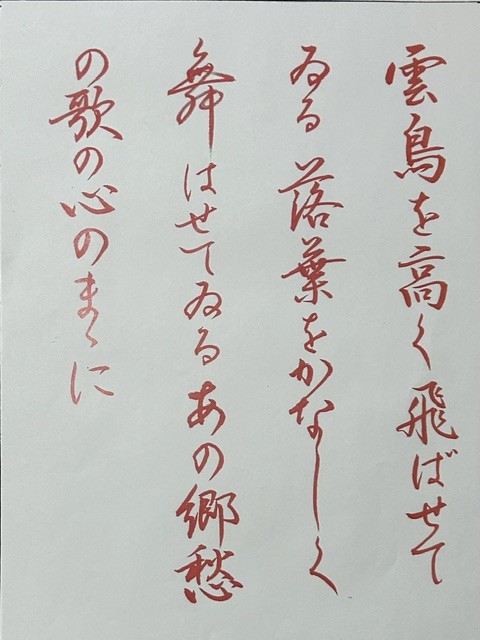 雲鳥を高く飛ばせて
ゐる落葉をかなしく
舞はせてゐるあの郷愁
の歌の心のまゝに